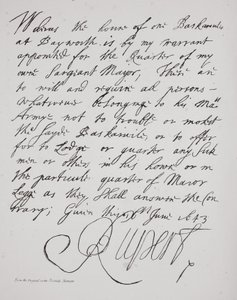 Whereas the house of one Baskervile
at Bayworth is by my warrant
appointed for the Quarter of my
owne Sargeant Major, These are
to will and require all persons
whatsoever belonging to his Mats
Army not to trouble or molest
the sayde Baskervile, or to offer
for to Lodge or quarter any sick
men or others in his house or in
the particuler quarter of Maior
Legge as they shall answere the con
trary; Given this 6th June 1643
Rupert
From the Original in the